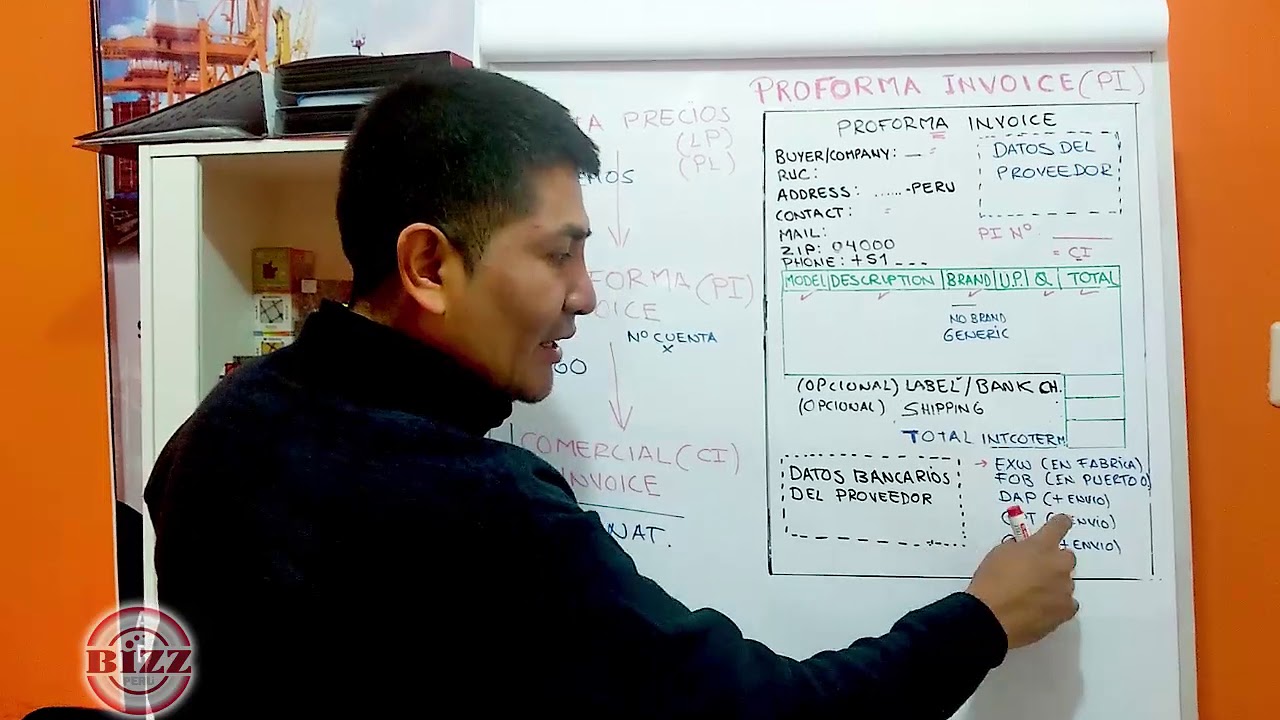 A PRECIOS
(LP)
(PL)
(PI)
Nº CUENTA
x
COMERCIAL (CI)
INVOICE
NAT.
PROFORMA INVOICE (PI)
PROFORMA INVOICE
BUYER/COMPANY:
RUC:
ADDRESS: ......-PERU
CONTACT:
MAIL:
ZIP: 04000
PHONE: +51 _ _ _
DATOS DEL
PROVEEDOR
PI Nº
= CI
MODEL DESCRIPTION BRAND U.P. Q TOTAL
NO BRAND
GENERIC
(OPCIONAL) LABEL/BANK CH.
(OPCIONAL) SHIPPING
TOTAL INTCOTERM
DATOS BANCARIOS
DEL PROVEEDOR
→ EXW (EN FABRICA)
FOB (EN PUERTO O)
DAP (+ ENVIO)
ENVIO)
+ ENVIO)
BIZZ
PERU